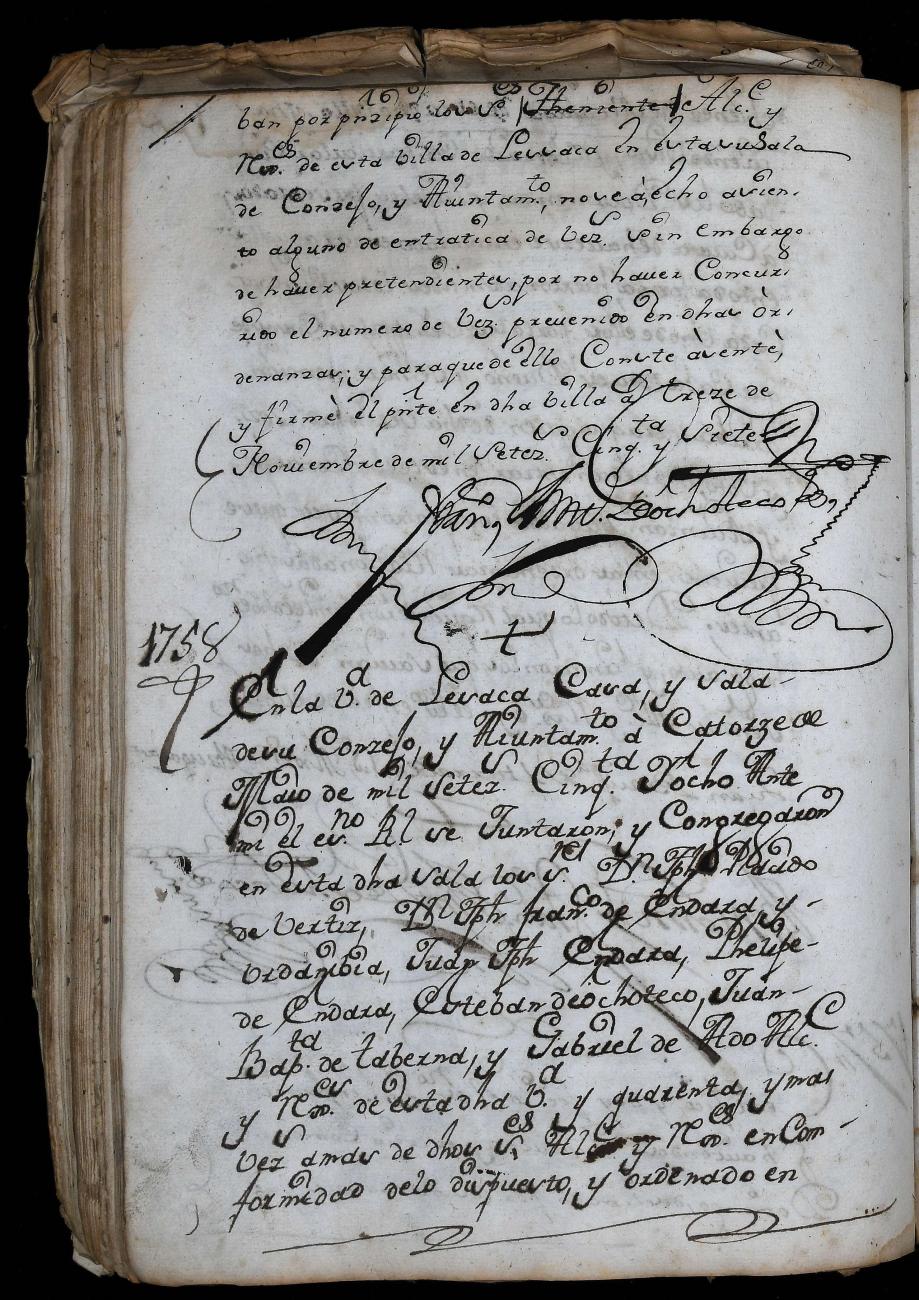 ban por prinzipio los S.res Theniente Alc.e y
Rex.res de esta Villa de Lesaca en esta su Sala
de Conzejo, y Aiuntam.to, no se à echo asien-
to alguno de entratica de vez.s Sin embargo
de haver pretendientes, por no haver Concur-
rido el numero de vez.s prevenido en dhas òr-
denanzas; y paraque de ello Conste àsentè,
y firmè el pnte en dha Villa a Treze de
Noviembre de mil Setez.s Cinq.ta y Siete
Juan Ant.o Dochoteco
1758
En la V.a de Lesaca Casa, y sala
de su Conzejo, y Aiuntam.to à Catorze de
Maio de mil Setez.s Cinq.ta y ocho Ante
mi el es.no Rl se Juntaron, y Congregaron
en esta dha sala los S.res Dn Jph Placido
de Vertiz, Dn Jph Fran.co de Endara, y
Urdambia, Juan Jph Endara, Phelipe
de Endara, Esteban de ochoteco, Juan
Bap.ta de taberna, y Gabriel de Ado Alc.e
y Rex.res de esta dha V.a y quarenta, y mas
vez.s amas de dhos S.res Alc.e y Rex.res en Con-
formidad delo dispuesto, y ordenado en